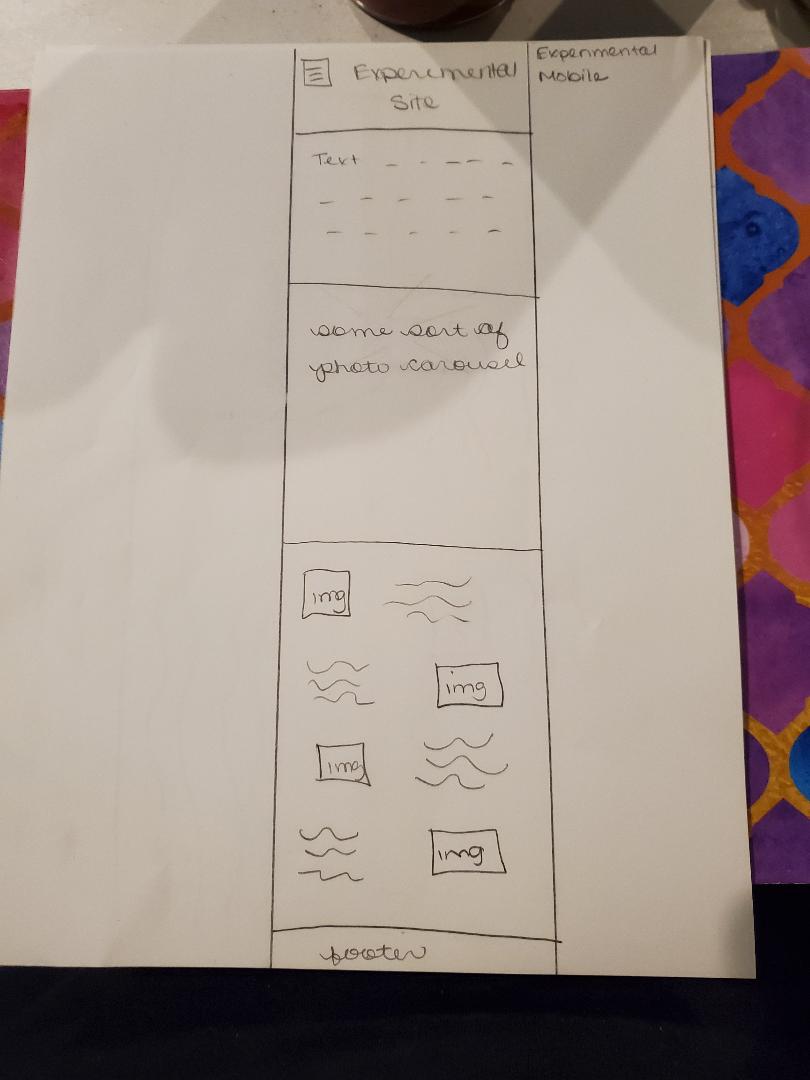 Experemental
Site
Experimental
Mobile
Text
some sort of
photo carousel
img
img
img
img
footer